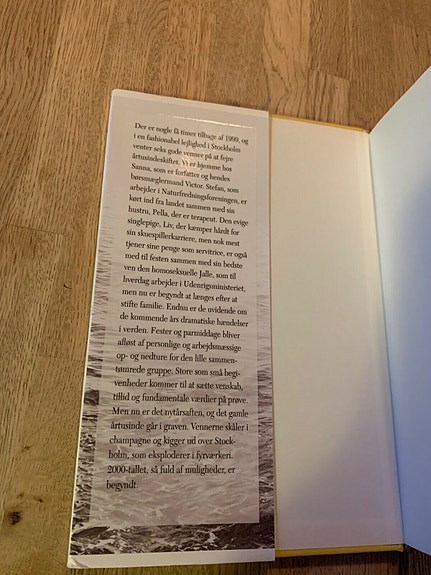 Der er nogle få timer tilbage af 1999, og
i en fashionabel lejlighed i Stockholm
venter seks gode venner på at fejre
årtusindeskiftet. Vi er hjemme hos
Sanna, som er forfatter og hendes
børsmæglermand Victor. Stefan, som
arbejder i Naturfredningsforeningen, er
kørt ind fra landet sammen med sin
hustru, Pella, der er terapeut. Den evige
singlepige, Liv, der kæmper hårdt for
sin skuespillerkarriere, men nok mest
tjener sine penge som servitrice, er også
med til festen sammen med sin bedste
ven den homoseksuelle Jalle, som til
hverdag arbejder i Udenrigsministeriet,
men nu er begyndt at længes efter at
stifte familie. Endnu er de uvidende om
de kommende års dramatiske hændelser
i verden. Fester og parmiddage bliver
afløst af personlige og arbejdsmæssige
op- og nedture for den lille sammen-
tømrede gruppe. Store som små begi-
venheder kommer til at sætte venskab,
tillid og fundamentale værdier på prøve.
Men nu er det nytårsaften, og det gamle
årtusinde går i graven. Vennerne skåler i
champagne og kigger ud over Stock-
holm, som eksploderer i fyrværkeri.
2000-tallet, så fuld af muligheder, er
begyndt.